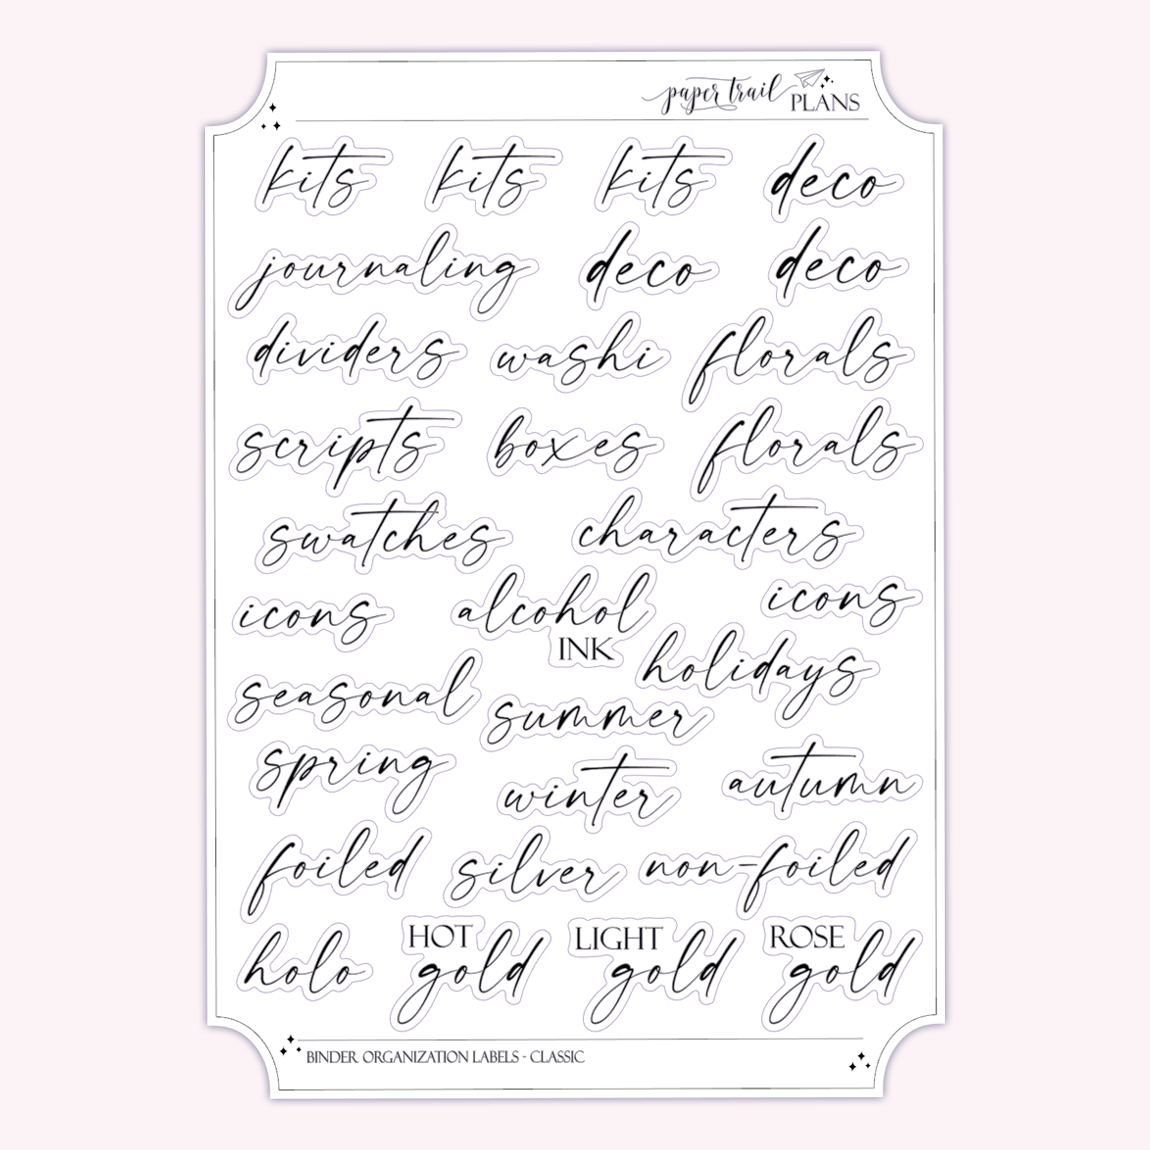 paper trail PLANS
kits kits kits deco
journaling deco deco
dividers washi florals
scripts boxes florals
swatches characters
icons alcohol INK icons
seasonal summer holidays
spring winter autumn
foiled silver non-foiled
holo HOT gold LIGHT gold ROSE gold
BINDER ORGANIZATION LABELS - CLASSIC